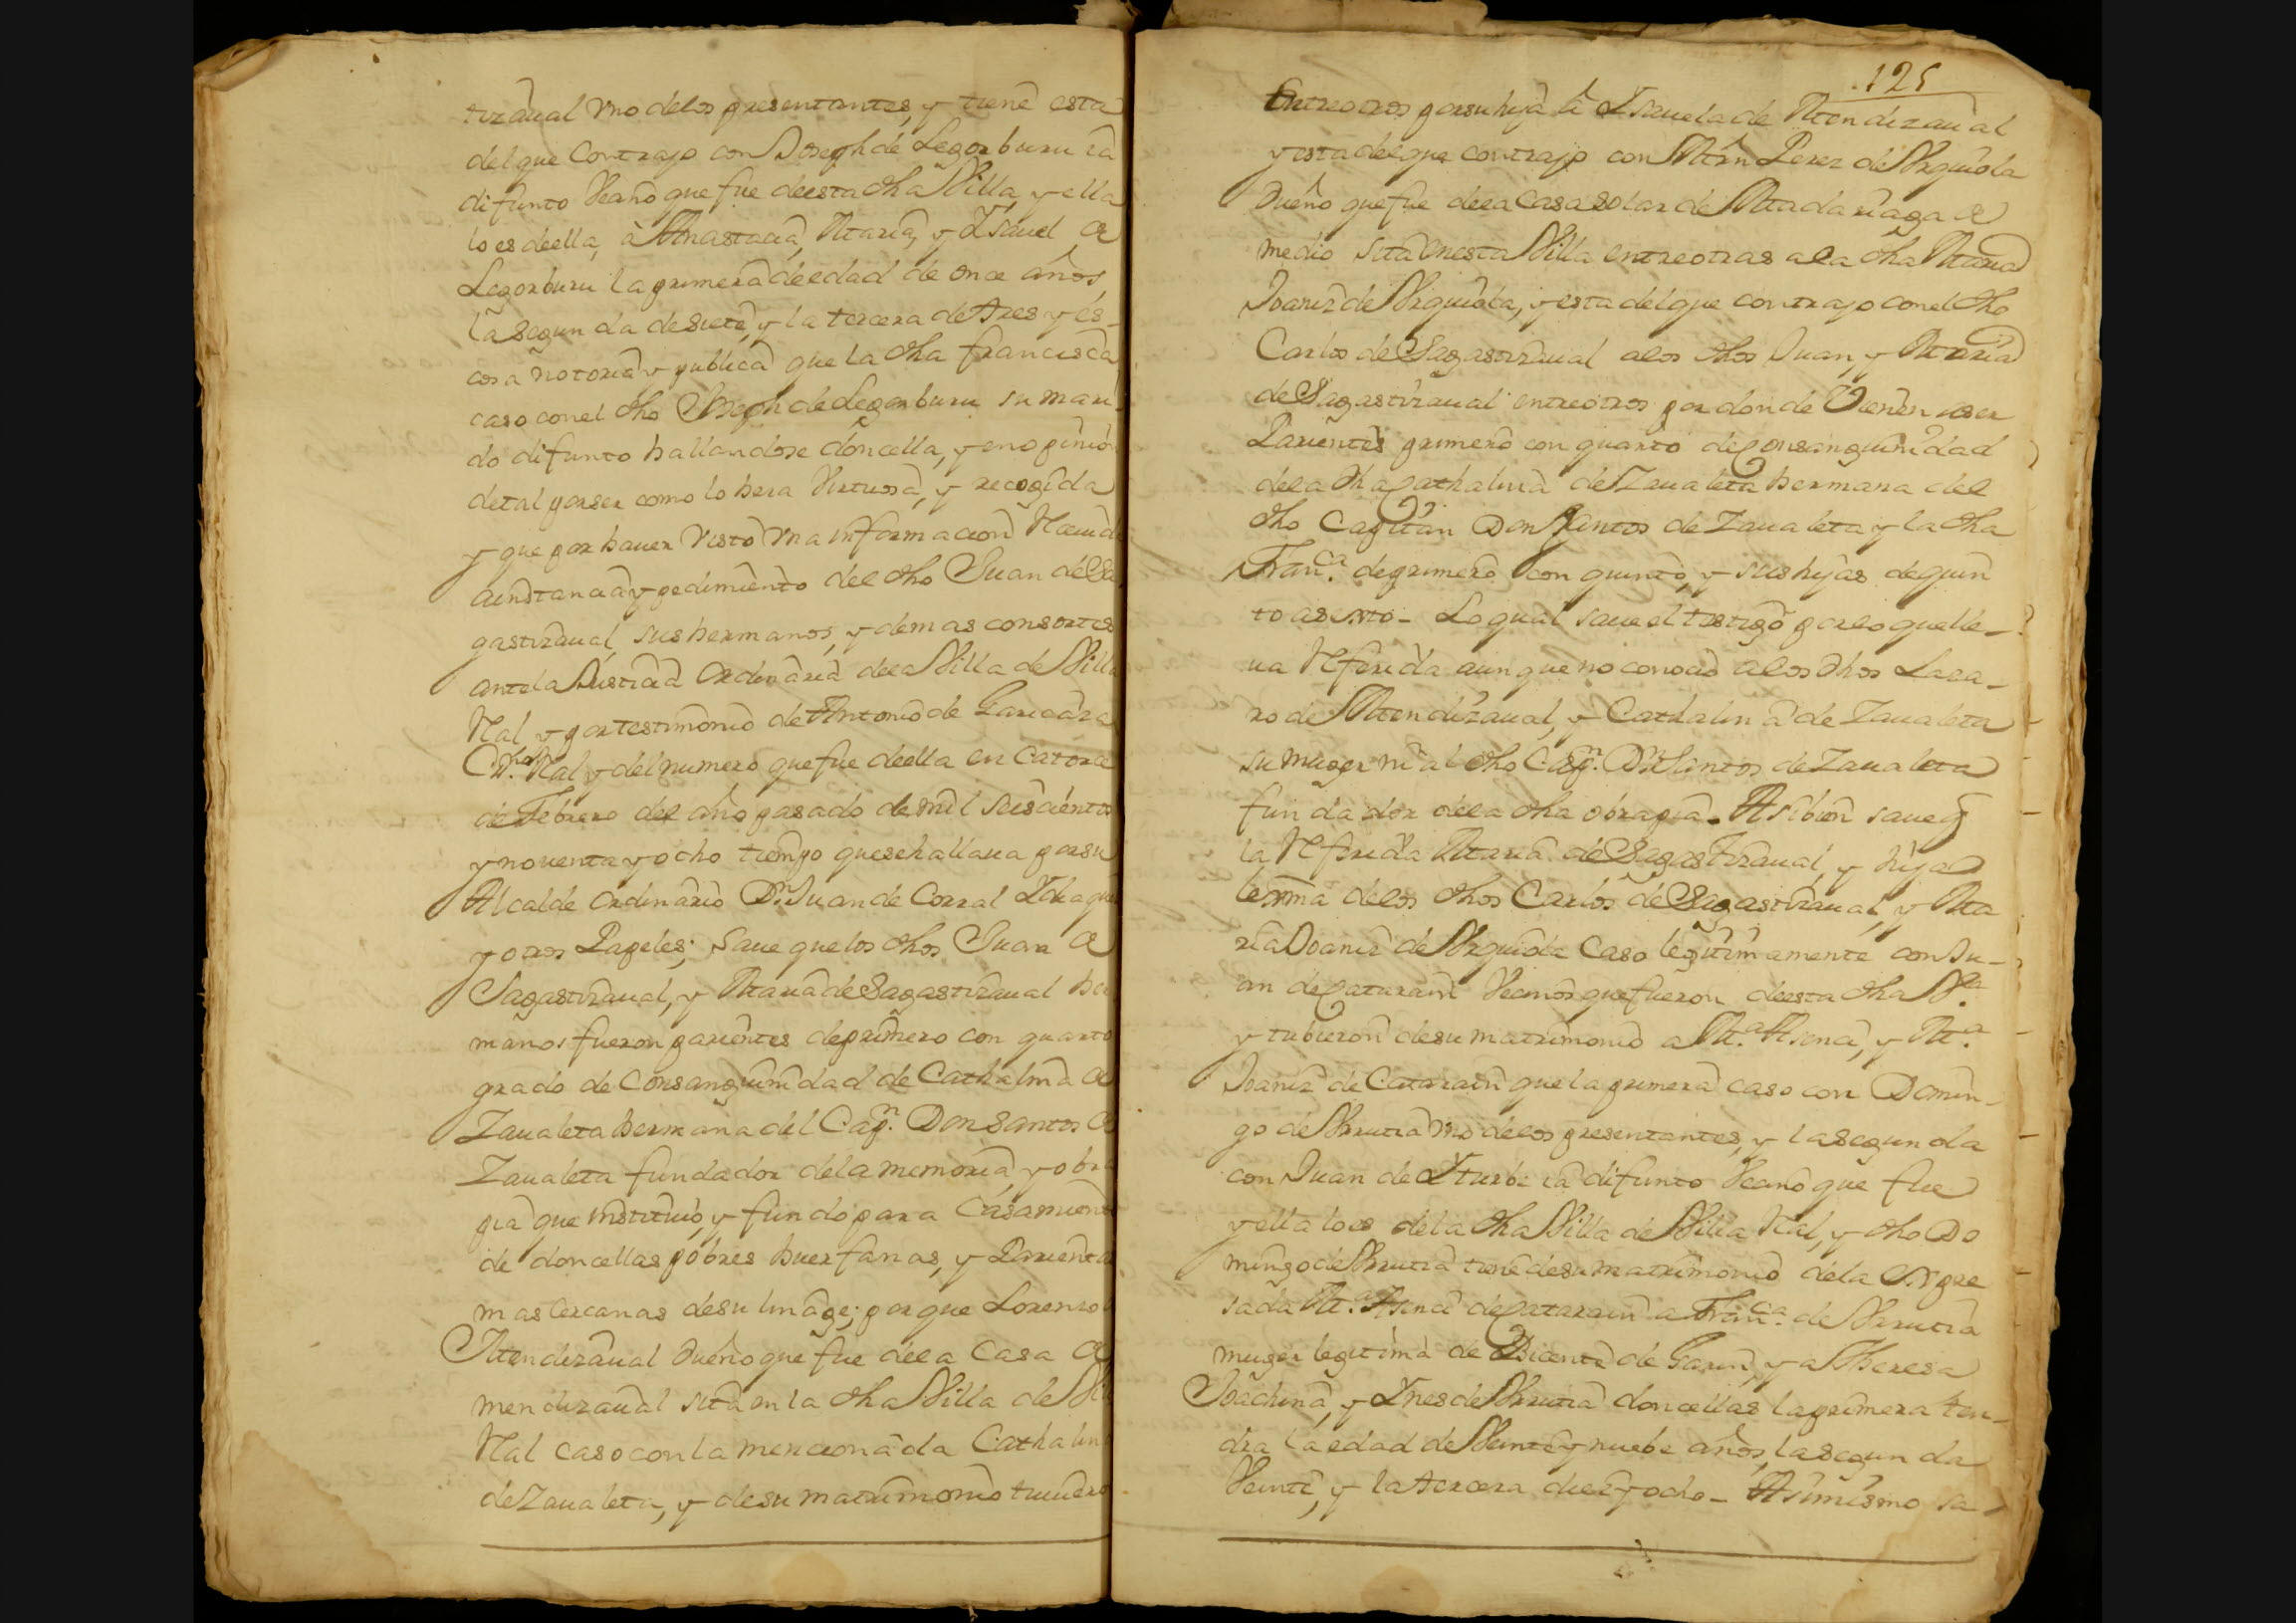 tizaual vno delos presentantes, y tiene esta
del que Contrajo con Joseph de Legorburu ia
difunto Vecino que fue de esta dha Villa, y ella
lo es de ella, à Anastacia, Maria, y Ysauel de
Legorburu la primera de edad de once años,
la segunda de siete, y la tercera de tres y és
cosa notoria y publica que la dha francisca
caso con el dho Joseph de Legorburu su mari
do difunto hallandose doncella, y en opinion
de tal por ser como lo hera Virtuosa, y recogida
y que por hauer visto vna informacion
a instancia y pedimiento del dho Juan de Sa
gastizaual, sus hermanos, y demas consortes
ante la Justicia Ordinaria de la Villa de Villa
Real y por testimonio de Antonio de Garicaza
Real y del numero que fue de ella en catorce
de Febrero del año pasado de mil seiscientos
y nouenta y ocho tiempo que se hallaua por su
Alcalde ordinario Dn. Juan de Corral Ydiaque
y otros Papeles; Saue que los dhos Juan de
Sagastizaual, y Maria de Sagastizaual her
manos fueron parientes de primero con quarto
grado de Consanguinidad de Cathalina de
Zaualeta hermana del Capn. Don Santos de
Zaualeta fundador de la memoria, y obra
pia que instituió, y fundó para Casamiento
de doncellas pobres huerfanas, y Parientas
mas cercanas de su linage; por que Lorenzo
Mendizaual dueño que fue de la Casa de
mendizaual sita en la dha Villa de Vi
Real caso con la mencionada Cathalina
de Zaualeta, y de su matrimonio tuuiero
125
Entre otros por su hija à Ysauela de Mendizaual
y esta del que contrajo con Mrn Perez de Vrquiola
dueño que fue de la casa solar de Madariaga de
medio sita en esta Villa entre otras a la dha Maria
Joaniz de Vrquiola, y esta del que contrajo con el dho
Carlos de Sagastizaual a los dhos Juan, y Maria
de Sagastizaual entre otros por donde Vienen a ser
Parientes primero con quarto de Consanguinidad
de la dha Cathalina de Zaualeta hermana del
dho Capitan Don Santos de Zaualeta y la dha
Franca. de primero con quinto, y sus hijas de quin
to a sexto - Lo qual saue el testigo por lo que lle-
ua Referida aunque no conocio a los dhos Laza-
ro de Mendizaual, y Cathalina de Zaualeta
su muger ni al dho Capn. Dn. Santos de Zaualeta
fundador de la dha obra pia - Asi bien saue q
la Referida Maria de Sagastizaual, y hija
lexma de los dhos Carlos de Sagastizaual, y Ma
ria Joaniz de Vrquiola Caso legitimamente con Ju-
an de Catarain Vecinos que fueron de esta dha Va.
y tubieron de su matrimonio a Ma. Asencia, y Ma.
Joaniz de Catarain que la primera caso con Domin-
go de Vrrutia vno de los presentantes, y la segunda
con Juan de Yturbe ia difunto Vecino que fue
y ella lo es de la dha Villa de Villa Real, y dho Do
mingo de Vrrutia tiene de su matrimonio de la Expre
sada Ma. Asencia de Catarain a Franca. de Vrrutia
muger legitima de Vicente de Garin, y a Theresa
Joachina, y Ynes de Vrrutia doncellas la primera ten-
dra la edad de Veinte y nuebe años, la segunda
Veinte, y la tercera diez y ocho - Asimismo sa